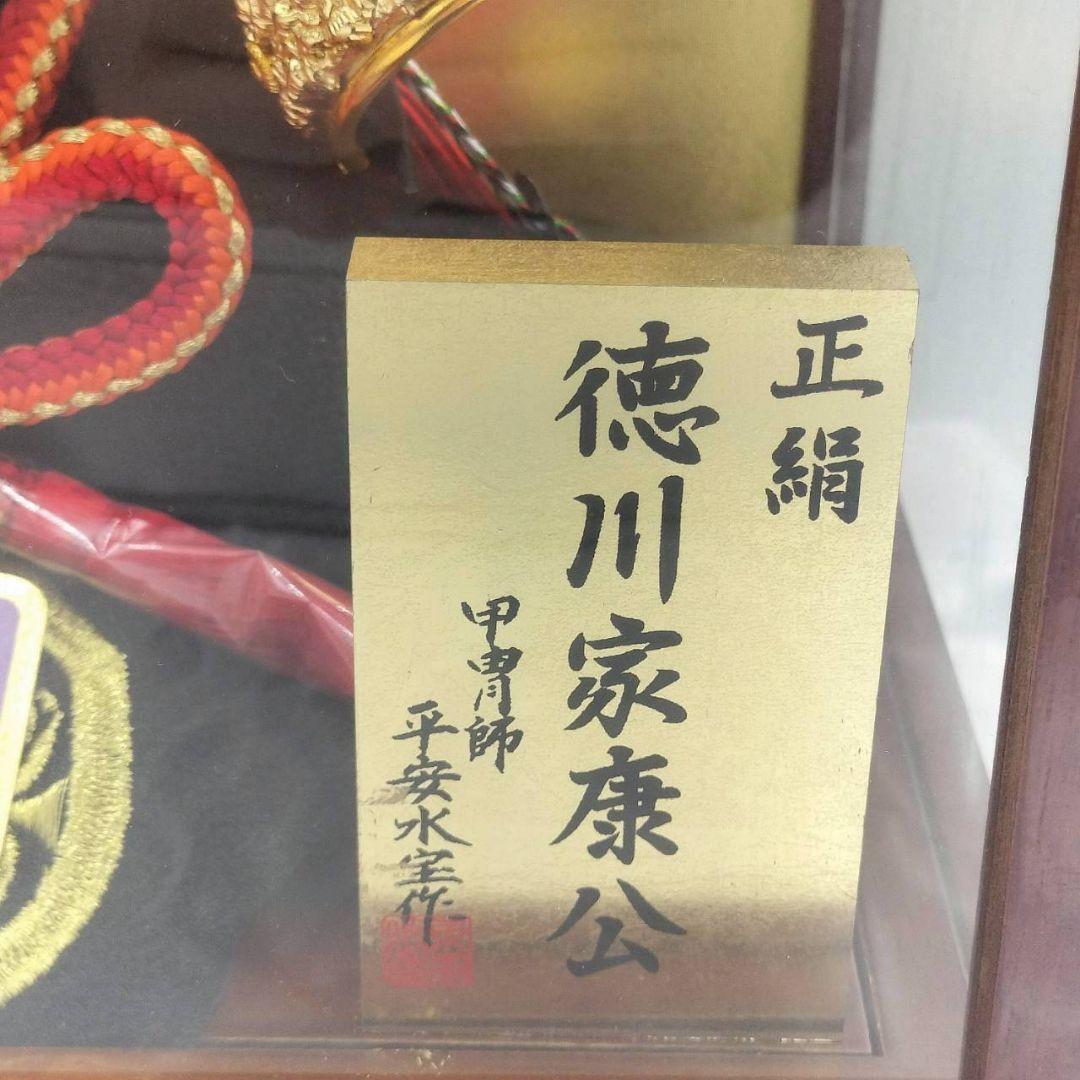 正絹
徳川家康公
甲冑師
平安水宝作